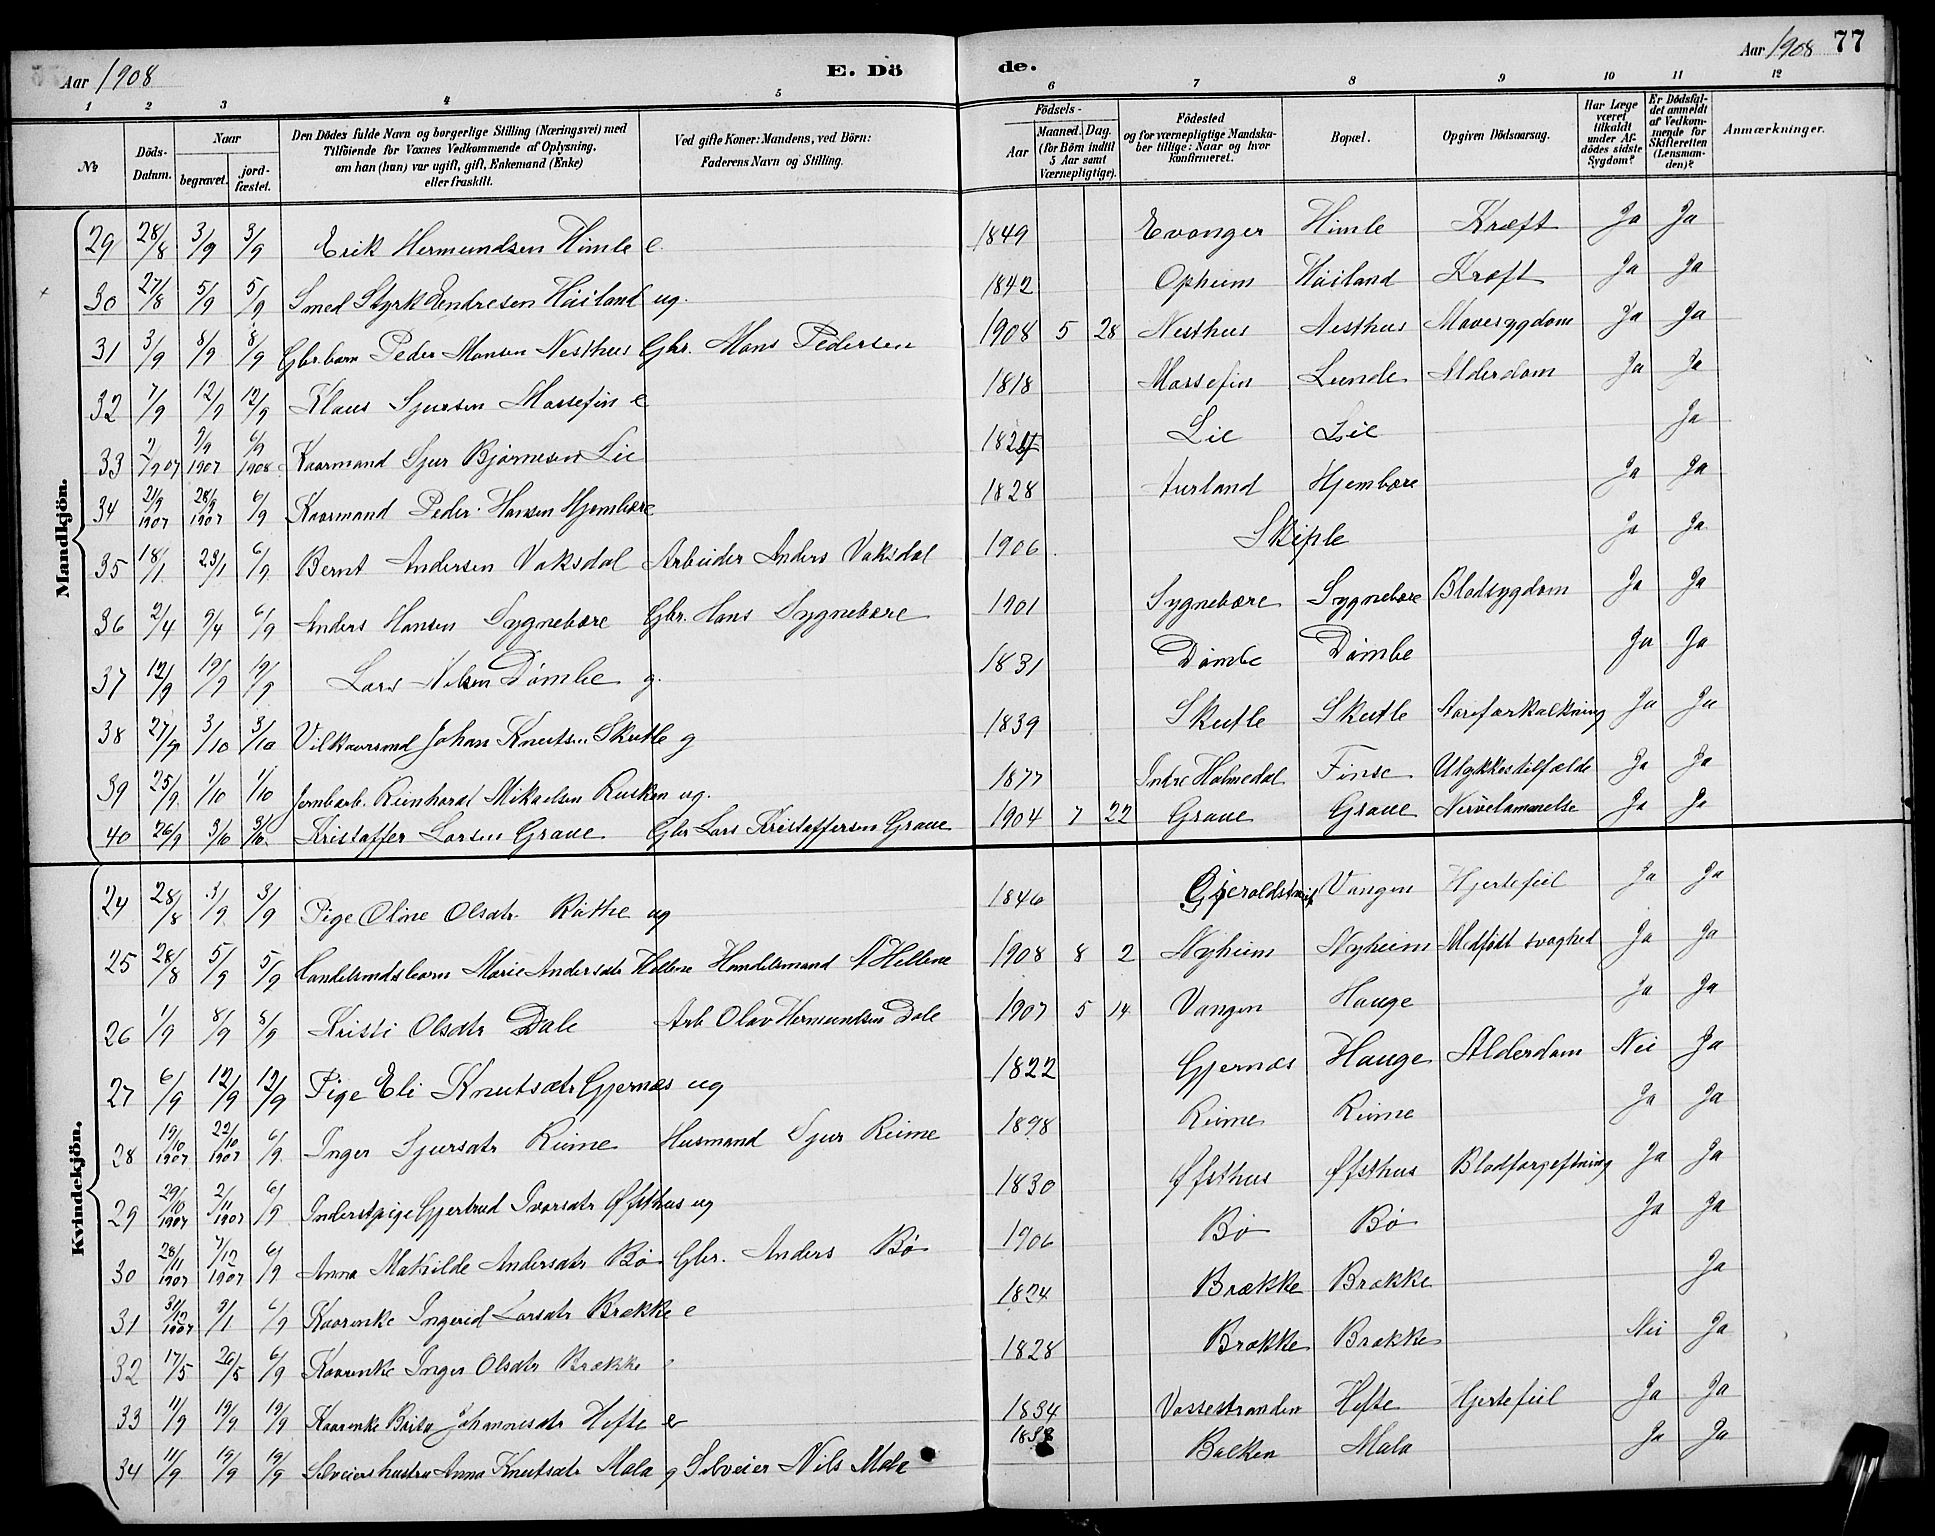 Aar 1908 E. Dö de. Aar 1908 77
1 2 3 4 5 6 7 8 9 10 11 12
No Döds-Datum. Naar begravet. jord-fæstet. Den Dödes fulde Navn og borgerlige Stilling (Næringsvei) med Tilföiende for Voxnes Vedkommende af Oplysning, om han (hun) var ugift, gift, Enkemand (Enke) eller fraskilt. Ved gifte Koner: Mandens, ved Börn: Faderens Navn og Stilling. Födsels- Aar Maaned. Dag. (for Börn indtil 5 Aar samt Værnepligtige). Födested og for værnepligtige Mandskaber tillige: Naar og hvor konfirmeret. Bopæl. Opgiven Dödsaarsag. Har Læge været tilkaldt under Afdödes sidste Sygdom? Er Dödsfaldet anmeldt af Vedkommende for Skifteretten (Lensmanden)? Anmærkninger.
Mandkjön.
29 28/8 3/9 3/9 Erik Hermundsen Himle e 1849 Evanger Himle Kræft Ja Ja
30 27/8 5/9 5/9 Smed Styrk Endresen Håiland ug. 1842 Opheim Håiland Kræft Ja Ja
31 3/9 8/9 8/9 Gbr.barn Peder Monsen Nesthus Gbr. Mons Pedersen 1908 5 28 Nesthus Nesthus Mavesygdom Ja Ja
32 7/9 12/9 12/9 Klaus Sjursen Mossefin e 1818 Mossefin Lunde Alderdom Ja Ja
33 2/9 07 9/9 1907 6/9 1908 Kaarmand Sjur Bjørnesen Lie Lie Lie Ja
34 21/9 1907 28/9 1907 6/9 Kaarmand Peder Hansen Hjembære 1828 Aurland Hjembære Ja Ja
35 18/1 23/1 6/9 Bernt Andersen Vaksdal Arbeider Anders Vaksdal 1906 Skiple Ja Ja
36 2/4 9/4 6/9 Anders Hansen Sygnebære Gbr. Hans Sygnebære 1901 Sygnebære Sygnebære Blodsygdom Ja Ja
37 12/9 19/9 19/9 Lars Nilsen Dømbe g. 1831 Dømbe Dømbe Ja Ja
38 27/9 3/10 3/10 Vilkaarsmd Johan Knutsen Skutle g 1839 Skutle Skutle Aareforkalkning Ja Ja
39 25/9 1/10 1/10 Jernbarb. Reinhardt Mikaelsen Rusken ug. 1877 Indre Holmedal Finse Ulykkestilfælde Ja Ja
40 26/9 3/10 3/10 Kristaffer Larsen Graue Gbr Lars Kristaffersen Graue 1904 7 22 Graue Graue Nervelammelse Ja Ja
Kvindekjön.
24 28/8 3/9 3/9 Pige Oline Olsdtr. Røthe ug 1846 Vangen Hjertefeil Ja Ja
25 28/8 5/9 5/9 Handelsmdsbarn Marie Andersdtr Hellene Handelsmand A Hellene 1908 8 2 Nyheim Nyheim Medfødt svaghed Ja Ja
26 1/9 8/9 8/9 Kristi Olsdtr Dale Arb Olav Hermundsen Dale 1907 5 14 Vangen Hauge Ja Ja
27 6/9 12/9 12/9 Pige Eli Knutsdtr Gjernæs ug 1822 Gjernæs Hauge Alderdom Nei Ja
28 19/10 1907 22/10 1907 6/9 Inger Sjursdtr Reime Husmand Sjur Reime 1898 Reime Reime Ja Ja
29 29/10 1907 2/11 1907 6/9 Inderstpige Gjertrud Ivarsdtr Øfsthus ug 1830 Øfsthus Øfsthus Blodforgeftning Ja Ja
30 28/11 1907 7/12 1907 6/9 Anna Matilde Andersdtr Bø Gbr. Anders Bø 1906 Bø Bø Ja Ja
31 31/12 1907 9/1 6/9 Kaarenke Ingerid Larsdtr Brække e 1824 Brække Brække Ja
32 17/5 26/5 6/9 Kaarenke Inger Olsdtr Brække 1828 Brække Brække Nei Ja
33 11/9 19/9 19/9 Kaarenke Brita Johannesdtr Hefte e 1834 Vossestranden Hefte Hjertefeil Ja Ja
34 11/9 19/9 19/9 Selveiershustru Anna Knutsdtr Mala g Selveier Nils Mala Bakken Mala Ja Ja